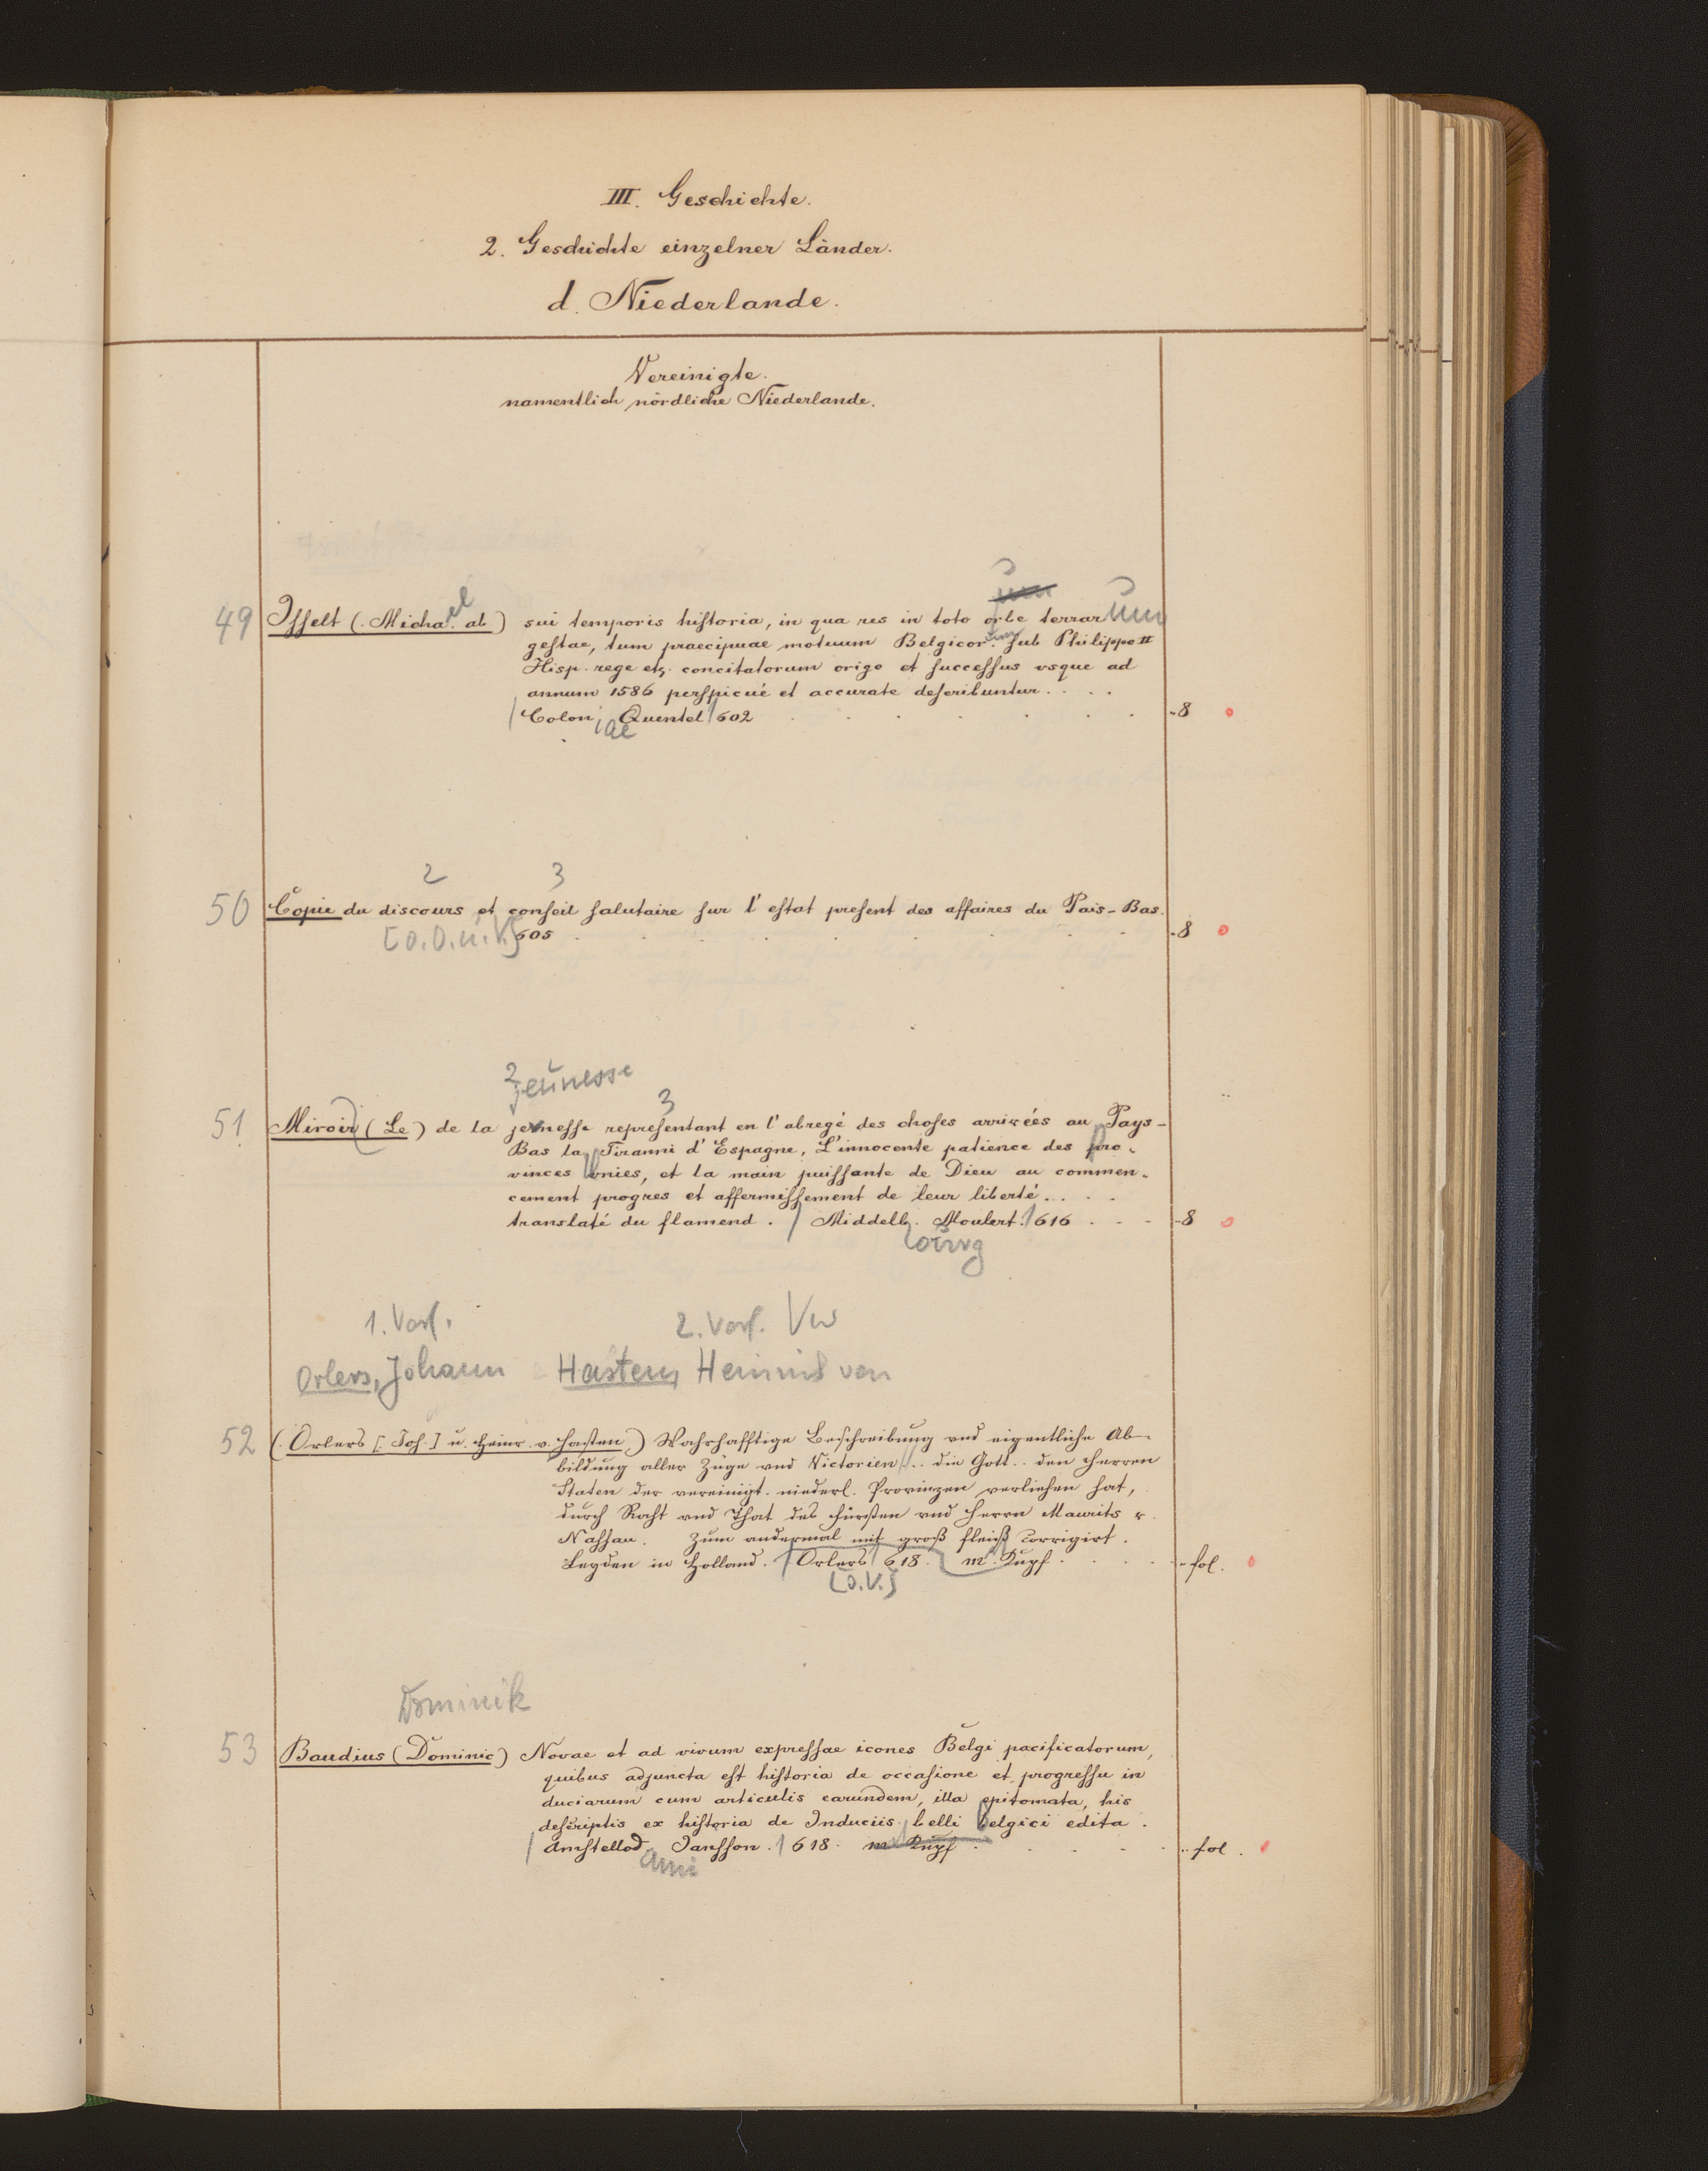 III. Geschichte.
2. Geschichte einzelner Länder.
d. Niederlande.
Vereinigte.
namentlich nördliche Niederlande.
49 Iſſelt (. Micha. ab) sui temporis hiſtoria, in qua res in toto orbe terrarum
el
geſtae, tum praecipuae motuum Belgicor. ſub Philippo II
Hisp. rege etz. concitatorum origo et ſucceſſus vsque ad
annum 1586 perſpicué et accurate deſcribuntur. . . .
Colon. Quentel 602 -8
iae
2 3
50 Copie du discours et conſeil ſalutaire ſur l' eſtat preſent des affaires du Pais-Bas.
[o.O.u.V.] 605 -8
2 jeunesse
3
51 Miroir (Le) de la jevneſſe repreſentant en l' abregé des choſes arrivées au Pays-
Bas la Tiranni d' Espagne, L'innocente patience des pro-
vinces vnies, et la main puiſſante de Dieu au commen-
cement progres et affermiſſement de leur liberté. . . .
translaté du flamend. Middelb. Moulert. 616 . . . -8
ourg
1. Verf. 2. Verf. Vw
Orlers, Johann Hasten, Heinrich von
52 (. Orlers [. Joh.] u. Heinr. v. Haſten.) Wahrhafftige Beſchreibung vnd eigentliche Ab-
bildung aller Züge vnd Victorien . . die Gott . . den Herren
Staten der vereinigt. niederl. Provinzen verliehen hat,
durch Raht vnd That des Fürſten vnd Herrn Maurits v.
Naſſau. Zum andermal mit groß fleiß corrigirt.
Leyden in Holland. Orlers 618. m. Kupf. fol.
[o.V.]
Dominik
53 Baudius (Dominic) Novae et ad vivum expreſſae icones Belgi pacificatorum,
quibus adjuncta eſt hiſtoria de occaſione et progreſſu in
duciarum cum articulis earundem, illa epitomata, his
deſcriptis ex hiſtoria de Induciis belli belgici edita.
Amſtellod. Janſſon. 618. m. Kupf. fol.
ami